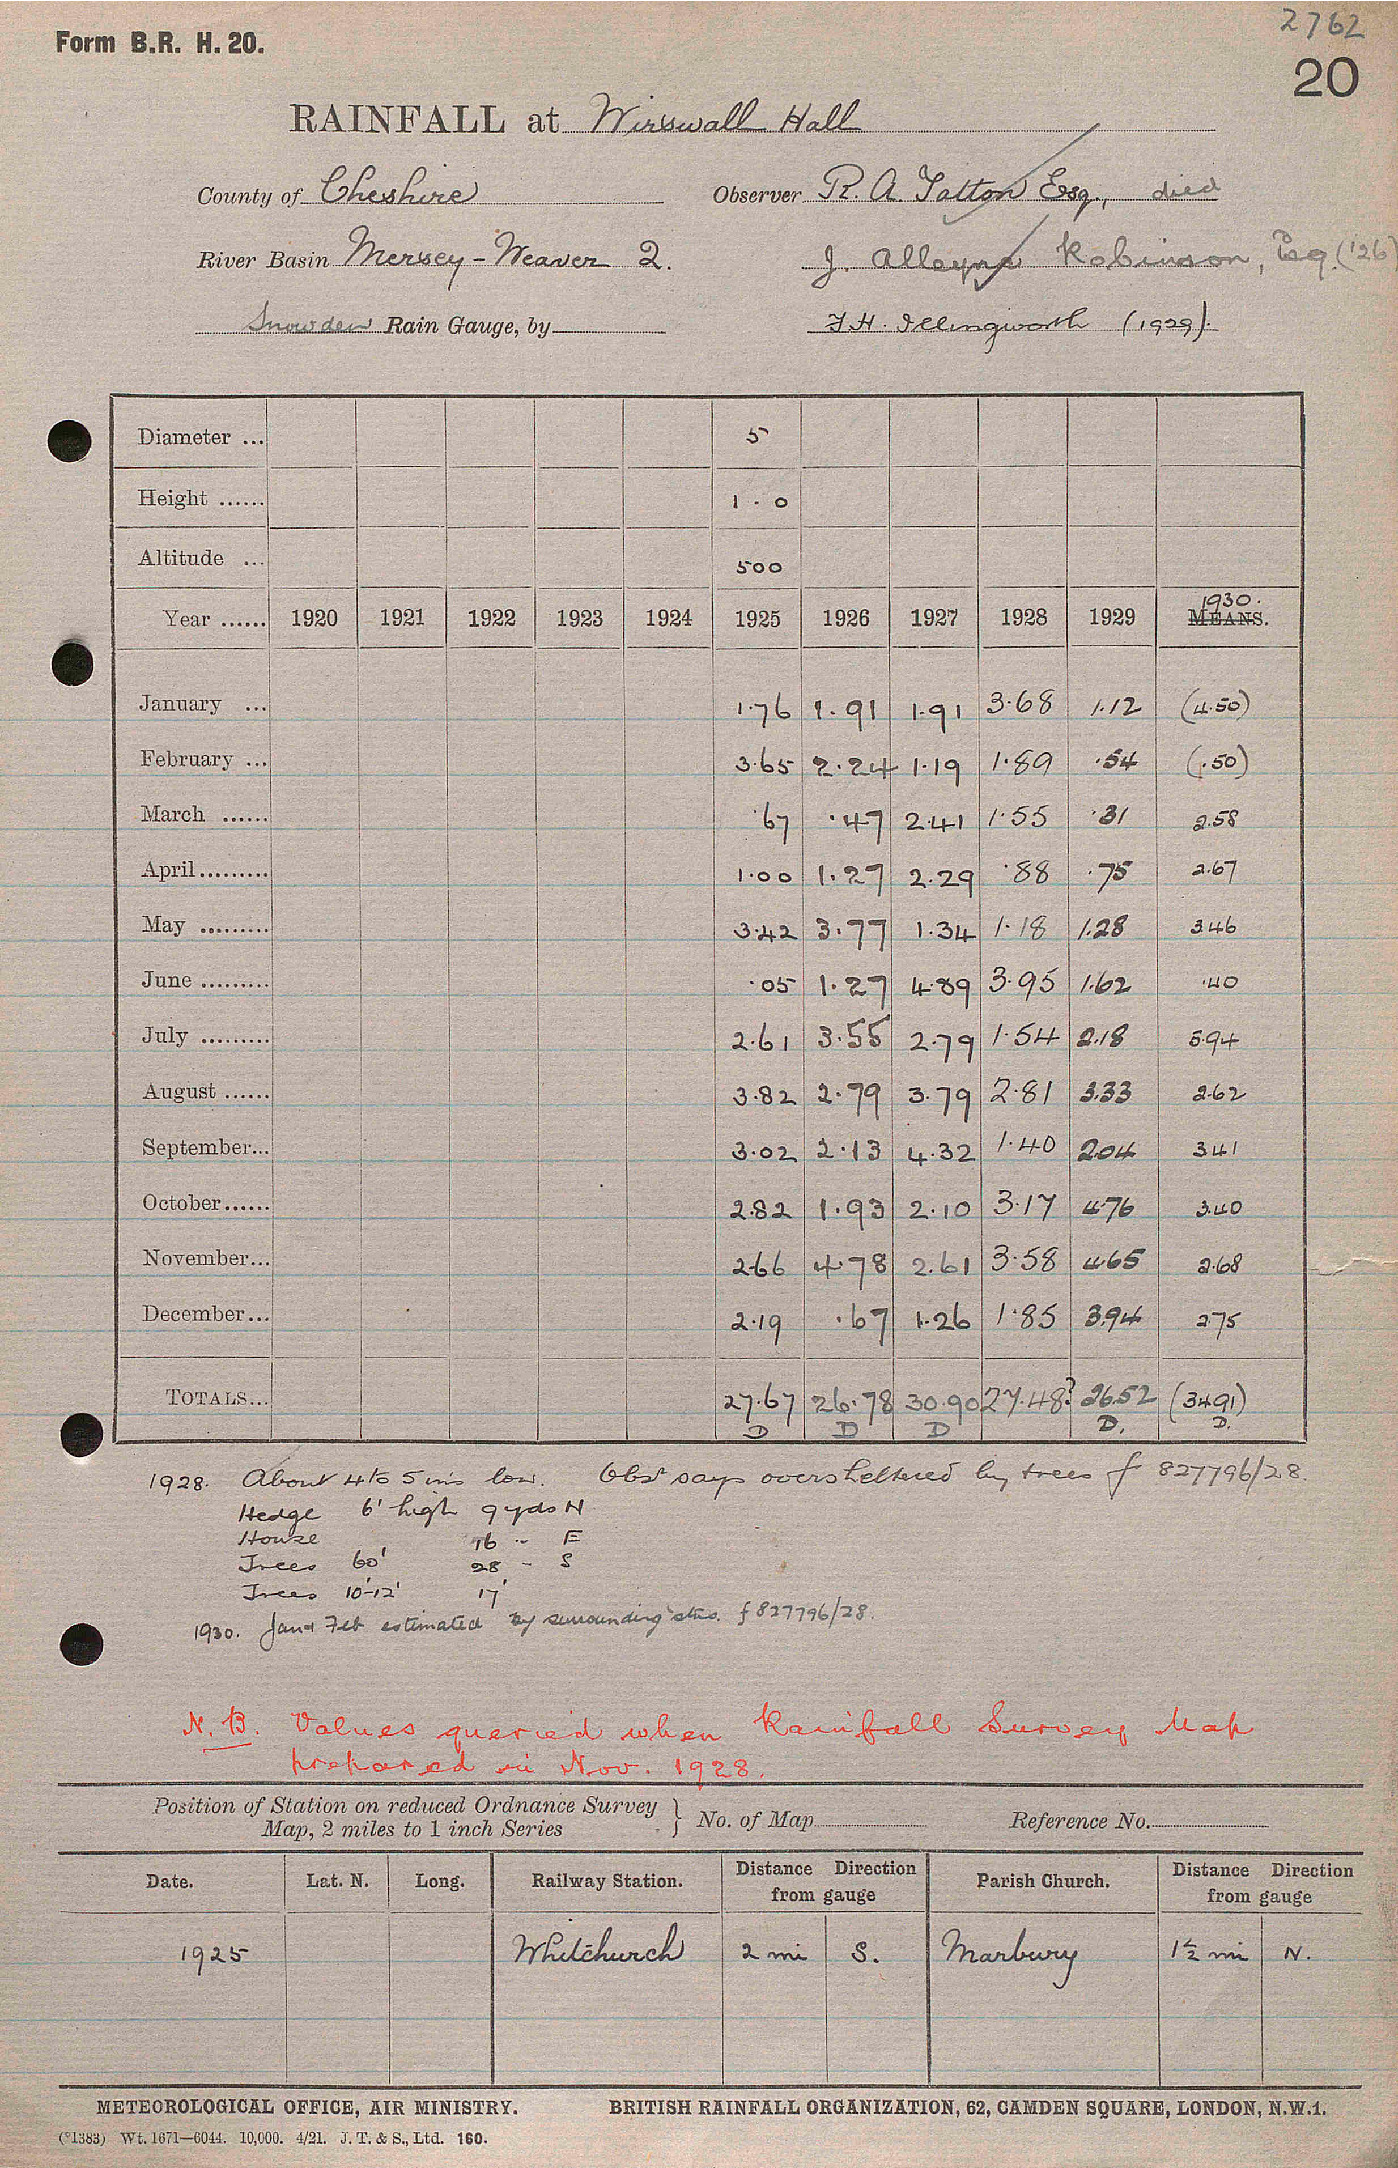 2762
Form B.R. H. 20.
20
RAINFALL at Wirswall Hall
County of Cheshire Observer R. A. Tatton Esq., died
River Basin Mersey - Weaver 2. J. Alleyne Robinson, Esq. ('26)
Snowden Rain Gauge, by F.H. Illingworth (1929).
Diameter ... 5
Height ...... 1 - 0
Altitude ... 500
Year ...... 1920 1921 1922 1923 1924 1925 1926 1927 1928 1929 MEANS. 1930.
January ... 1.76 1.91 1.91 3.68 1.12 (4.50)
February ... 3.65 2.24 1.19 1.89 .54 (.50)
March ...... .67 .47 2.41 1.55 .31 2.58
April ......... 1.00 1.27 2.29 .88 .75 2.67
May ......... 3.42 3.77 1.34 1.18 1.28 3.46
June ......... .05 1.27 4.89 3.95 1.62 .40
July ......... 2.61 3.55 2.79 1.54 2.18 5.94
August ...... 3.82 2.79 3.79 2.81 3.33 2.62
September... 3.02 2.13 4.32 1.40 2.04 3.41
October ...... 2.82 1.93 2.10 3.17 4.76 3.40
November... 2.66 4.78 2.61 3.58 4.65 2.68
December... 2.19 .67 1.26 1.85 3.94 2.75
TOTALS... 27.67 26.78 30.90 27.48? 26.52 (34.91)
D D D D. D.
1928. About 4 to 5 ins low. Obsr says oversheltered by trees f 827796/28.
Hedge 6' high 9 yds N
House 16 " E
Trees 60' 28 " S
Trees 10'-12' 17'
1930. Jan & Feb estimated by surrounding stns. f 827796/28.
N.B. Values queried when Rainfall Survey Map
prepared in Nov. 1928.
Position of Station on reduced Ordnance Survey
Map, 2 miles to 1 inch Series } No. of Map Reference No.
Date. Lat. N. Long. Railway Station. Distance Direction from gauge Parish Church. Distance Direction from gauge
1925 Whitchurch 2 mi S. Marbury 1½ mi N.
METEOROLOGICAL OFFICE, AIR MINISTRY. BRITISH RAINFALL ORGANIZATION, 62, CAMDEN SQUARE, LONDON, N.W.1.
(*1383) Wt. 1671—6044. 10,000. 4/21. J. T. & S., Ltd. 160.